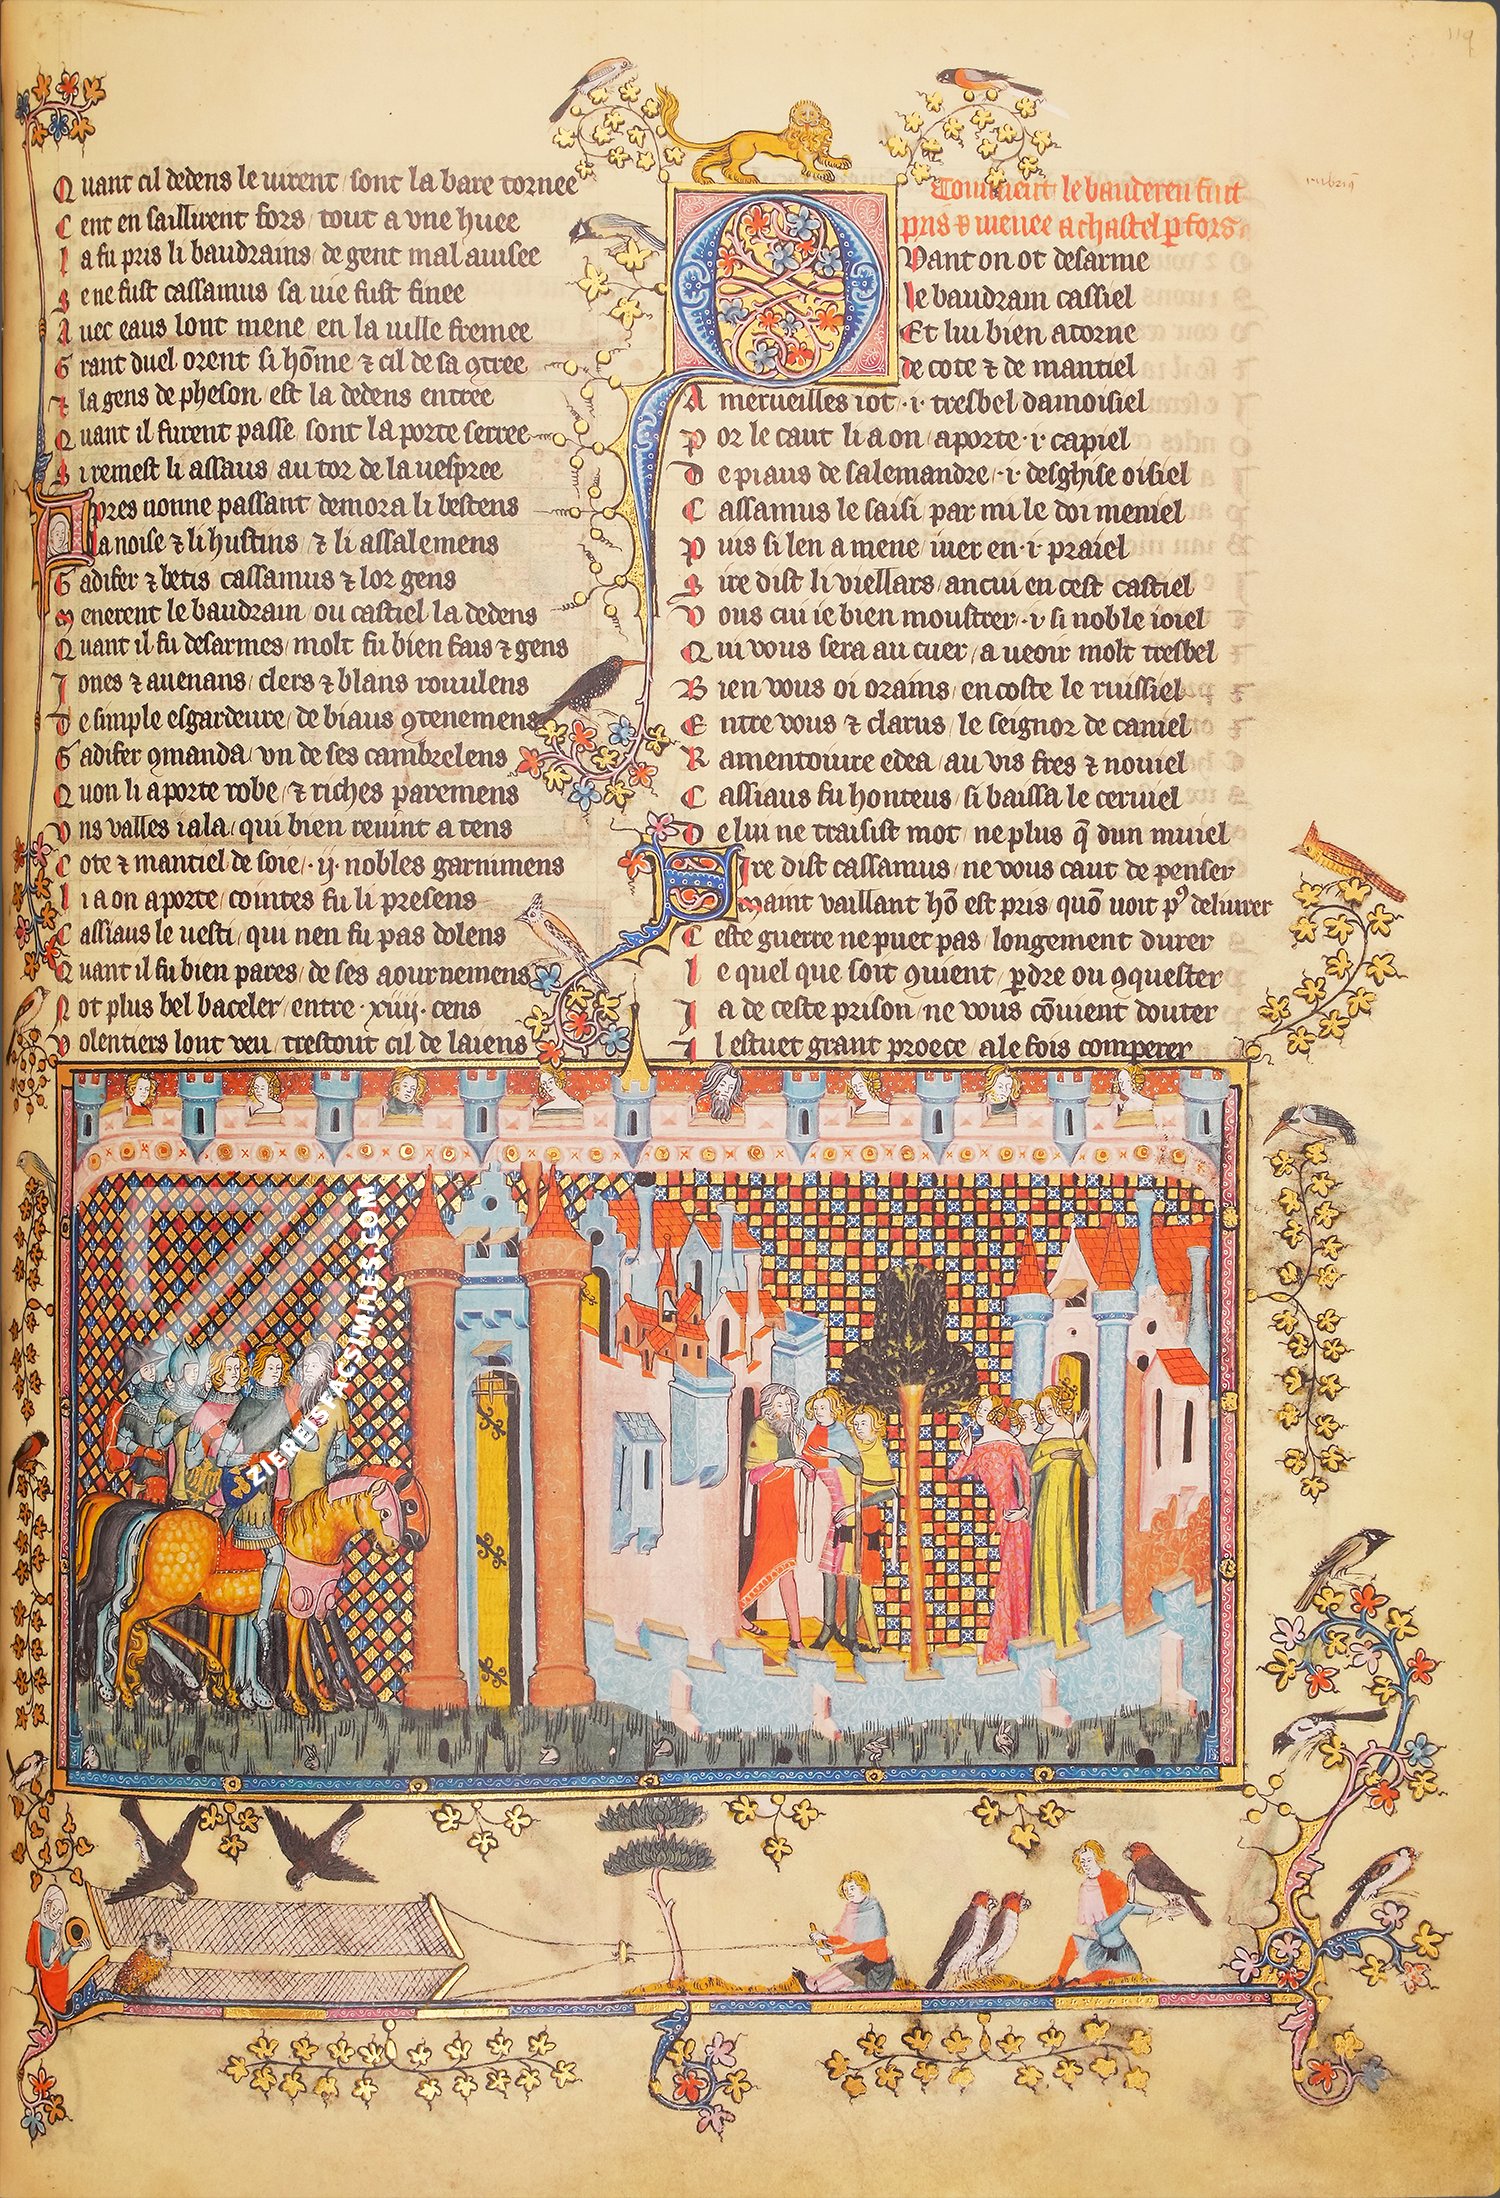 Quant cil dedens le uirent sont la bare tornee
Cent en saillirent fors tout a vne huee
Ia fu pris li baudrains de gent mal auisee
Se ne fust cassamus sa uie fust finee
Auec eaus lont mene en la uille fremee
Grant duel orent si hōme ⁊ cil de sa ꝯtree
⁊ la gens de pheson est la dedens entree
Quant il furent passe sont la porte serree
Si remest li assaus au tor de la uespree
Apres nonne passant demora li bestens
La noise ⁊ li hustins ⁊ li assalemens
Gadifer ⁊ betis cassamus ⁊ lor gens
Menerent le baudrain ou castiel la dedens
Quant il fu desarmes molt fu bien fais ⁊ gens
Iones ⁊ auenans clers ⁊ blans rouulens
De simple esgardeure de biaus ꝯtenemens
Gadifer ꝯmanda vn de ses cambrelens
Quon li aporte robe ⁊ riches paremens
Vns valles i ala qui bien reuint a tens
Cote ⁊ mantiel de soie ·ij· nobles garnimens
Li a on aporte cointes fu li presens
Cassiaus le uesti qui nen fu pas dolens
Quant il fu bien pares de ses aournemens
Not plus bel baceler entre ·xiiij· cens
Volentiers lont veu trestout cil de laiens
Comment le bauderen fuit
pris ⁊ menee a chastel p fors
Quant on ot desarme
le baudrain cassiel
Et lui bien atorne
de cote ⁊ de mantiel
A merueilles iot ·i· tresbel damoisiel
Por le caut li a on aporte ·i· capiel
De piaus de salemandre ·i· desghise oisiel
Cassamus le saisi par mi le doi meniel
Puis si len a mene iuer en ·i· praiel
Sire dist li viellars ancui en cest castiel
Vous cui ie bien moustrer ·i· si noble ioiel
Qui vous sera au cuer a ueoir molt tresbel
Bien vous oi orains encoste le ruissiel
Entre vous ⁊ clarus le seignor de caniel
Ramentoiure edea au vis fres ⁊ nouiel
Cassiaus fu honteus si baissa le ceruiel
De lui ne traisist mot ne plus q̄ dun muiel
Sire dist cassamus ne vous caut de penser
Maint vaillant hō est pris quō uoit p᾿ deliurer
Ceste guerre ne puet pas longement durer
Le quel que soit ꝯuient ꝑdre ou ꝯquester
Ia de ceste prison ne vous cōuient douter
Il estuet grant proece a le fois comperer
119
rubriq̄
ZIEREISFACSIMILES.COM